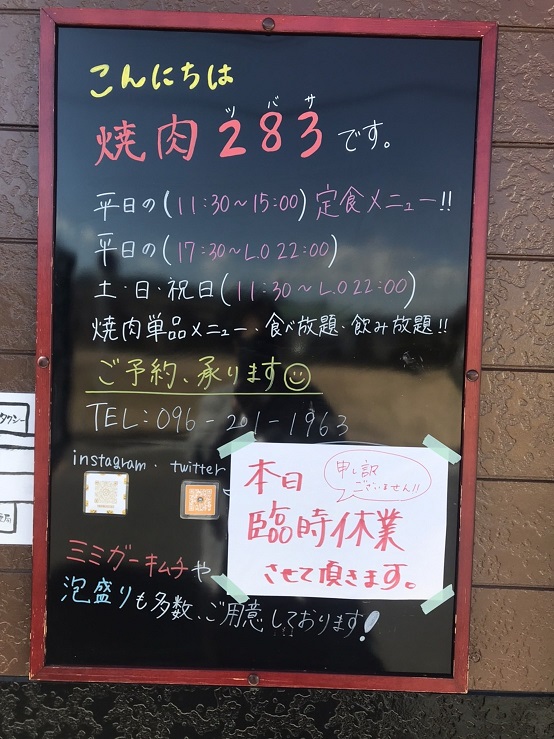 こんにちは
ツバサ
焼肉283です。
平日の(11:30～15:00)定食メニュー!!
平日の(17:30～L.O 22:00)
土・日・祝日(11:30～L.O 22:00)
焼肉単品メニュー、食べ放題・飲み放題!!
ご予約、承ります
TEL:096-201-1963
instagram・twitter
本日
申し訳
ございません!!
臨時休業
させて頂きます。
ミミガーキムチや
泡盛りも多数、ご用意しております!
タクシー